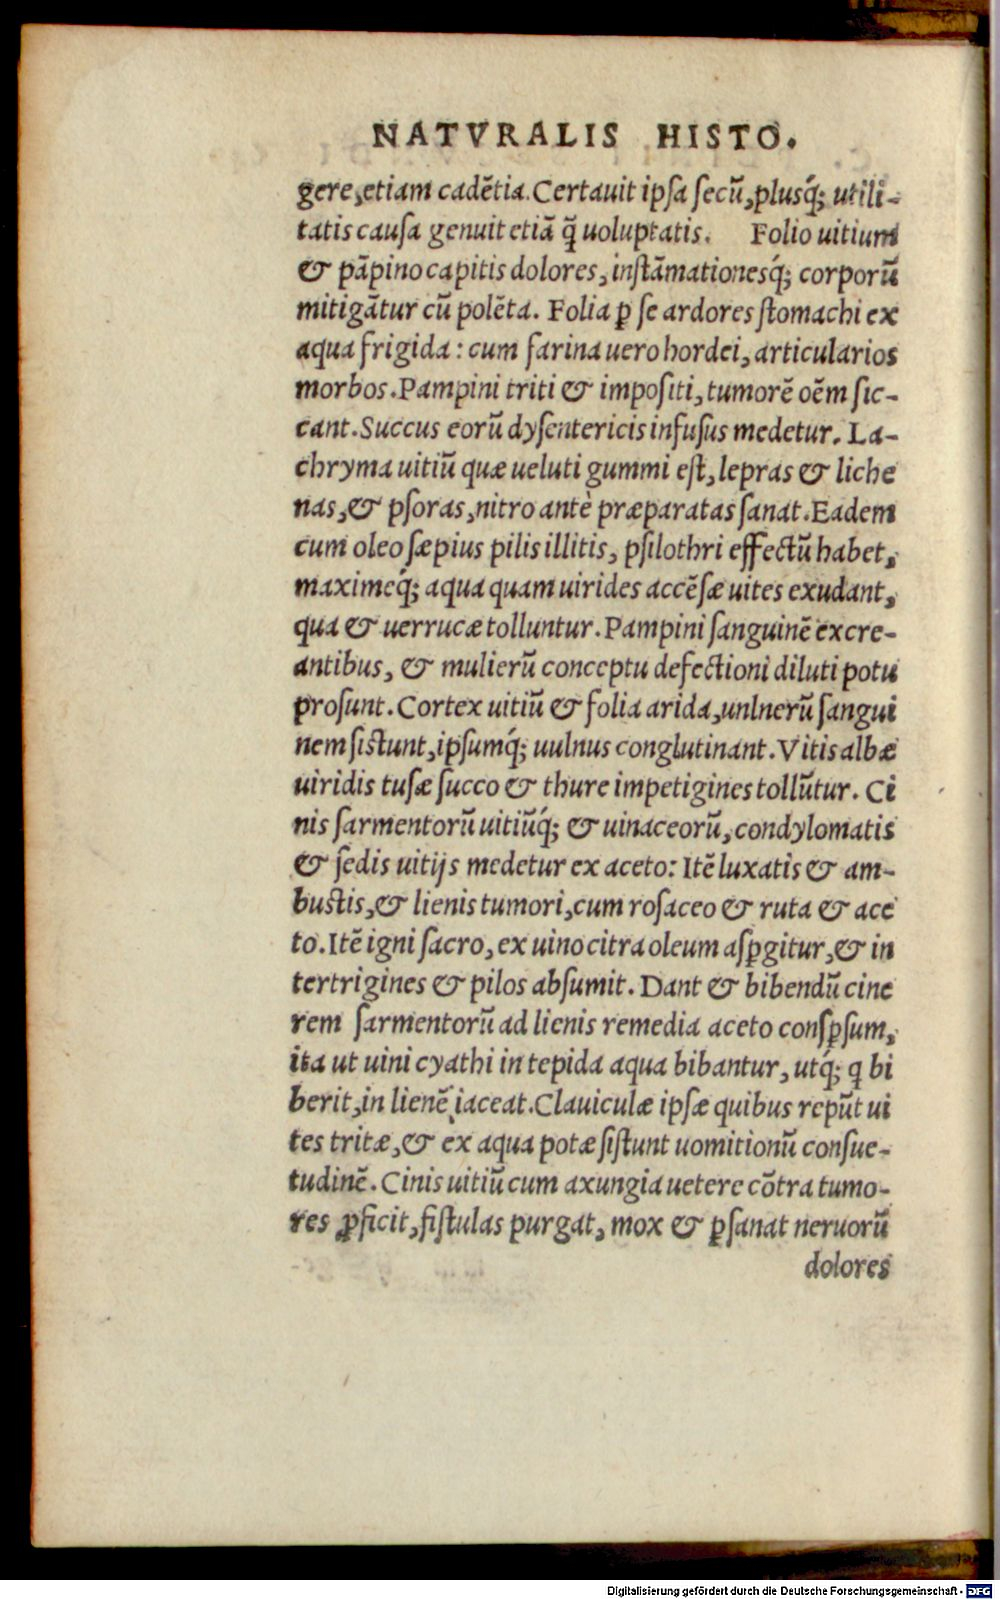 NATVRALIS HISTO.
gere, etiam cadẽtia. Certauit ipſa ſecũ, plusq́; utili-
tatis cauſa genuit etiã q̃ uoluptatis. Folio uitium
& pãpino capitis dolores, inſtãmationesq́; corporũ
mitigãtur cũ polẽta. Folia ꝑ ſe ardores ſtomachi ex
aqua frigida: cum farina uero hordei, articularios
morbos. Pampini triti & impoſiti, tumorẽ oẽm ſic-
cant. Succus eorũ dyſentericis infuſus medetur. La-
chryma uitiũ quæ ueluti gummi eſt, lepras & liche
nas, & pſoras, nitro antè præparatas ſanat. Eadem
cum oleo ſæpius pilis illitis, pſilothri effectũ habet,
maximeq́; aqua quam uirides accẽſæ uites exudant,
qua & uerrucæ tolluntur. Pampini ſanguinẽ excre-
antibus, & mulierũ conceptu defectioni diluti potu
proſunt. Cortex uitiũ & folia arida, unlnerũ ſangui
nem ſistunt, ipſumq́; uulnus conglutinant. Vitis albæ
uiridis tuſæ ſucco & thure impetigines tollũtur. Ci
nis ſarmentorũ uitiũq́; & uinaceorũ, condylomatis
& ſedis uitijs medetur ex aceto: Itẽ luxatis & am-
buſtis, & lienis tumori, cum roſaceo & ruta & ace
to. Itẽ igni ſacro, ex uino citra oleum aſꝑgitur, & in
tertrigines & pilos abſumit. Dant & bibendũ cine
rem ſarmentorũ ad lienis remedia aceto conſꝑſum,
ita ut uini cyathi in tepida aqua bibantur, utq́; q bi
berit, in lienẽ iaceat. Clauiculæ ipſæ quibus repũt ui
tes tritæ, & ex aqua potæ ſiſtunt uomitionũ conſue-
tudinẽ. Cinis uitiũ cum axungia uetere cõtra tumo-
res ꝓficit, fiſtulas purgat, mox & ꝑſanat neruorũ
dolores
Digitalisierung gefördert durch die Deutsche Forschungsgemeinschaft - DFG